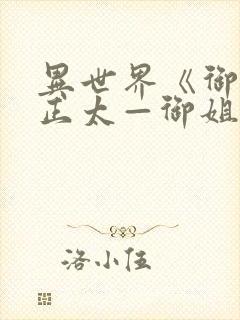 異世界《御
正太—御姐
洛小伍